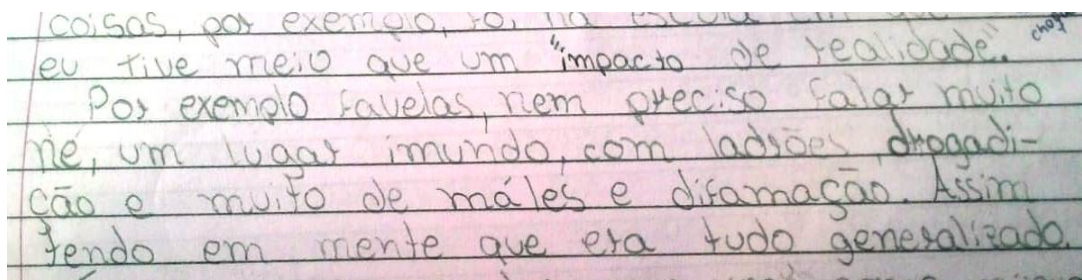 coisas, por exemplo, foi na escola em que
eu tive meio que um "impacto de realidade". choque
Por exemplo favelas, nem preciso falar muito
né, um lugar imundo, com ladrões, drogadi-
ção e muito de máles e difamação. Assim
tendo em mente que era tudo generalizado.